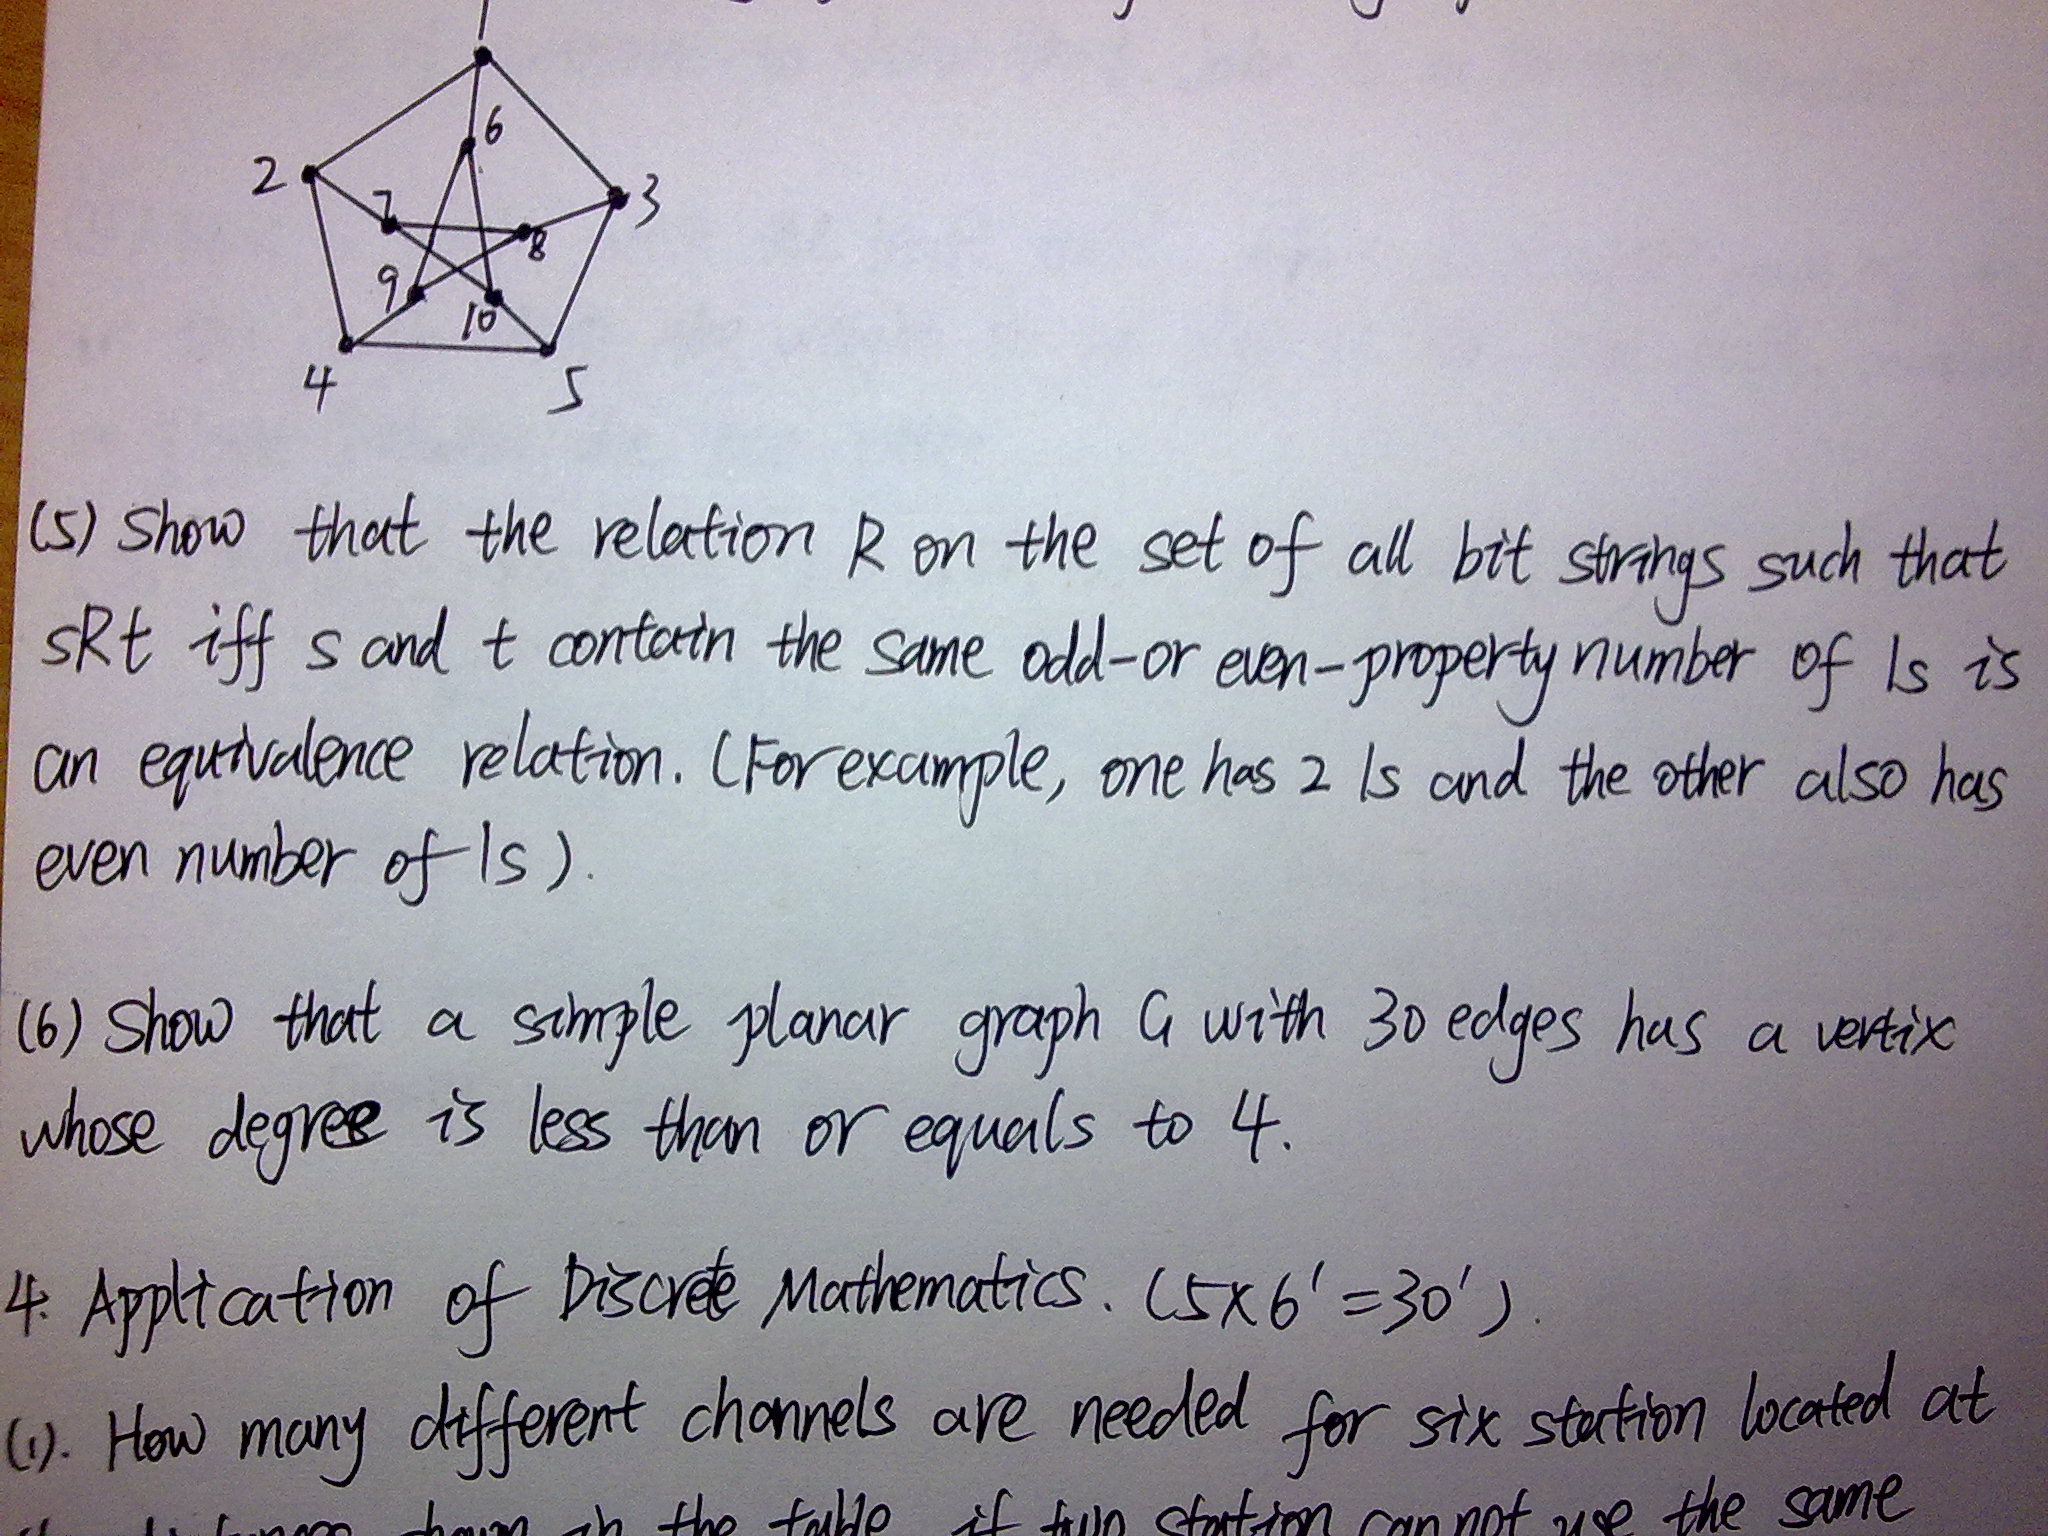 1
6
2
7
3
8
9
10
4
5
(5) Show that the relation R on the set of all bit strings such that
sRt iff s and t contain the same odd-or even-property number of 1s is
an equivalence relation. (For example, one has 2 1s and the other also has
even number of 1s).
(6) Show that a simple planar graph G with 30 edges has a vertix
whose degree is less than or equals to 4.
4. Application of Discrete Mathematics. (5×6'=30').
(1). How many different channels are needed for six station located at
shown in the table, if two station cannot use the same